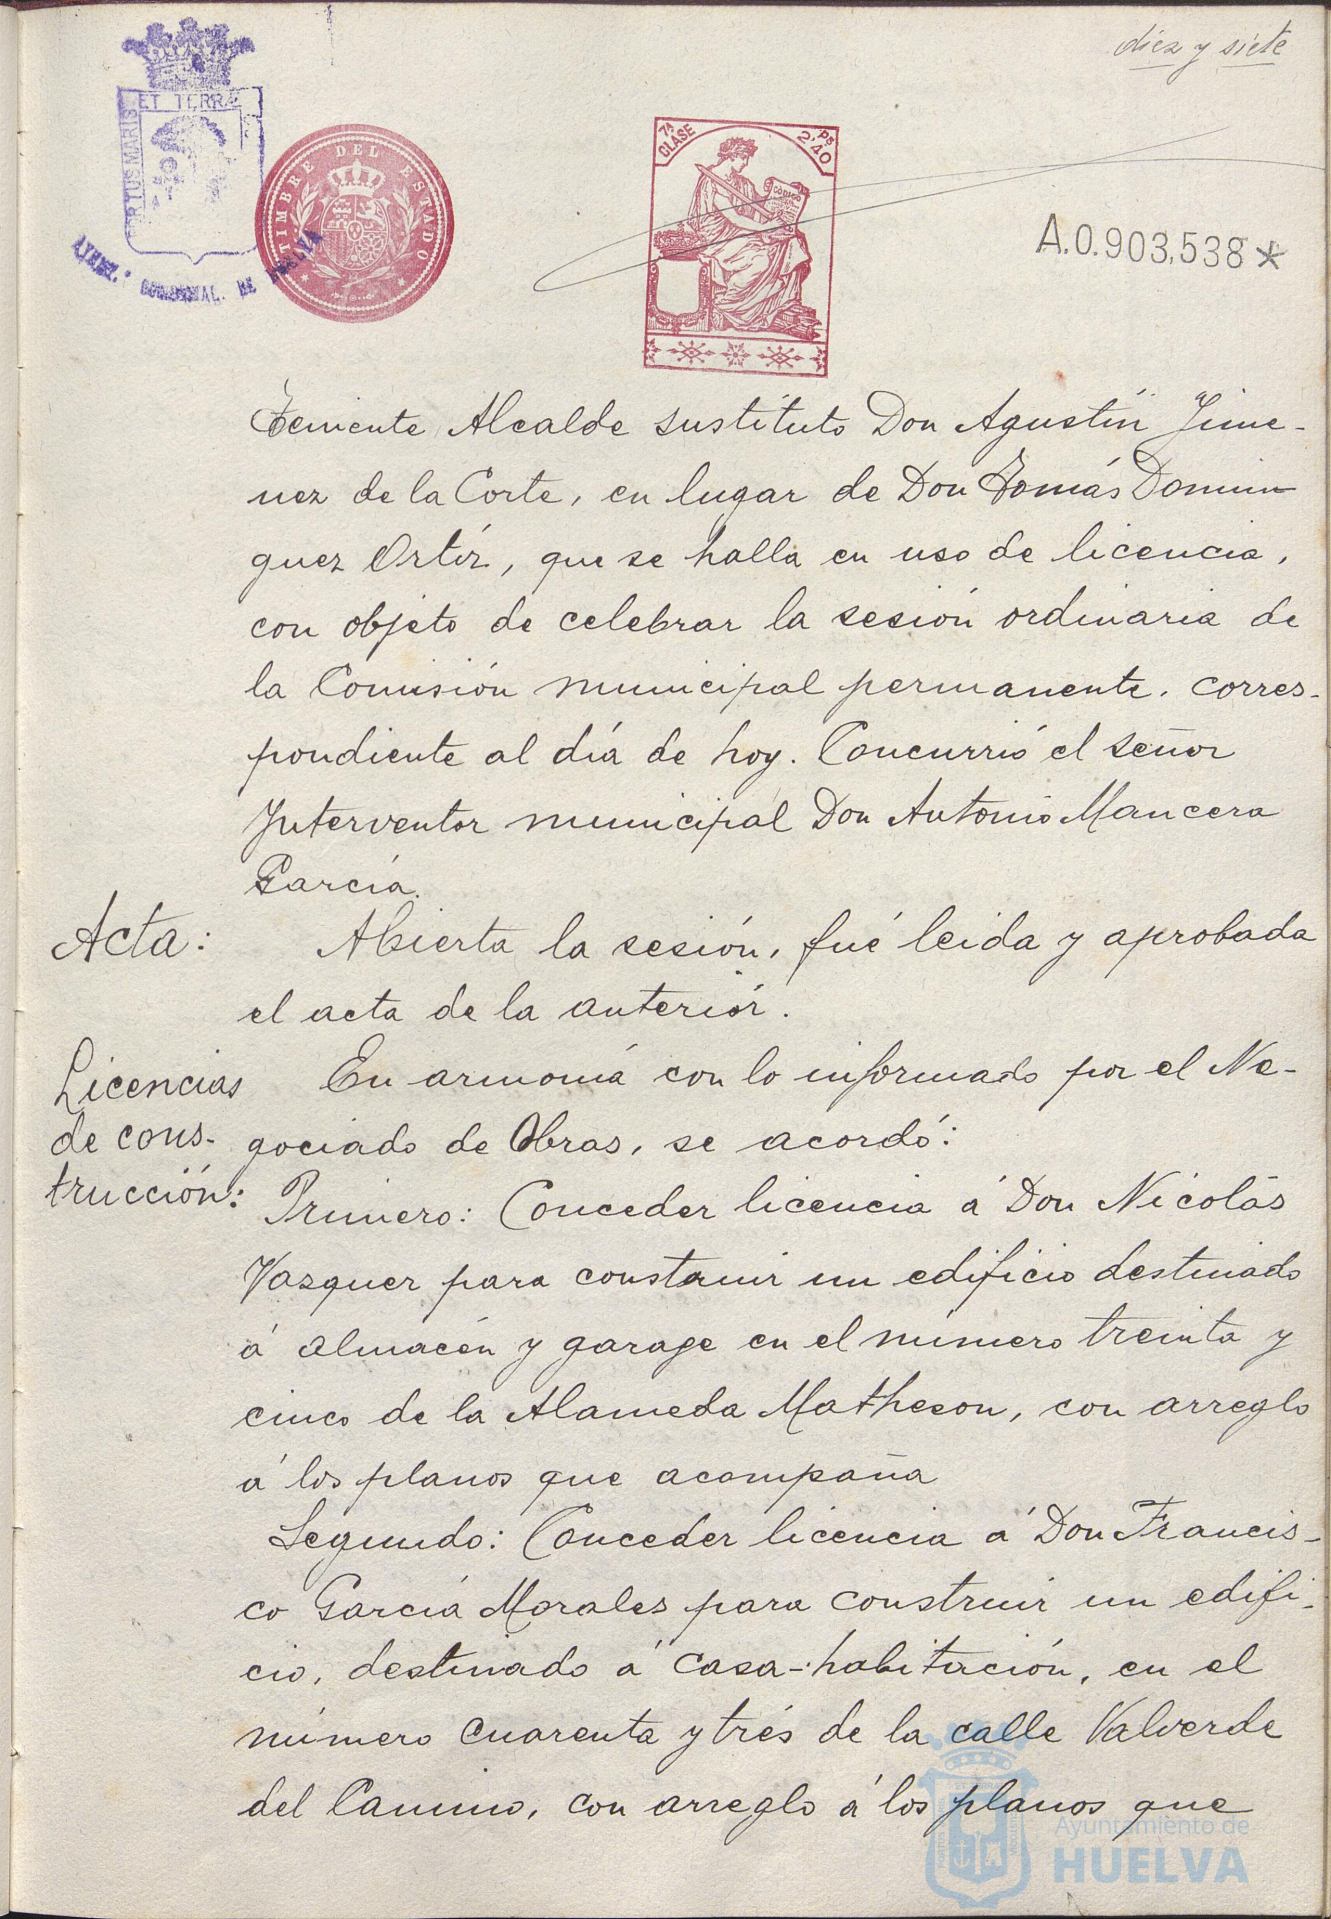 diez y siete
ET TERRÆ
PORTUS MARIS
TIMBRE DEL ESTADO
7ª CLASE
PS 2'40
CODIGO
A.0.903,538*
Teniente Alcalde sustituto Don Agustín Jime-
nez de la Corte, en lugar de Don Tomás Domin
guez Ortíz, que se halla en uso de licencia,
con objeto de celebrar la sesión ordinaria de
la Comisión municipal permanente, corres-
pondiente al día de hoy. Concurrió el señor
Interventor municipal Don Antonio Mancera
García.
Acta: Abierta la sesión, fué leida y aprobada
el acta de la anteriór.
Licencias En armonía con lo informado por el Ne-
de cons- gociado de Obras, se acordó:
trucción: Primero: Conceder licencia á Don Nicolás
Vazquez para construir un edificio destinado
á almacén y garage en el número treinta y
cinco de la Alameda Matheson, con arreglo
á los planos que acompaña
Segundo: Conceder licencia á Don Francis-
co García Morales para construir un edifi-
cio, destinado á casa-habitación, en el
número cuarenta y trés de la calle Valverde
del Camino, con arreglo á los planos que
Ayuntamiento de
HUELVA